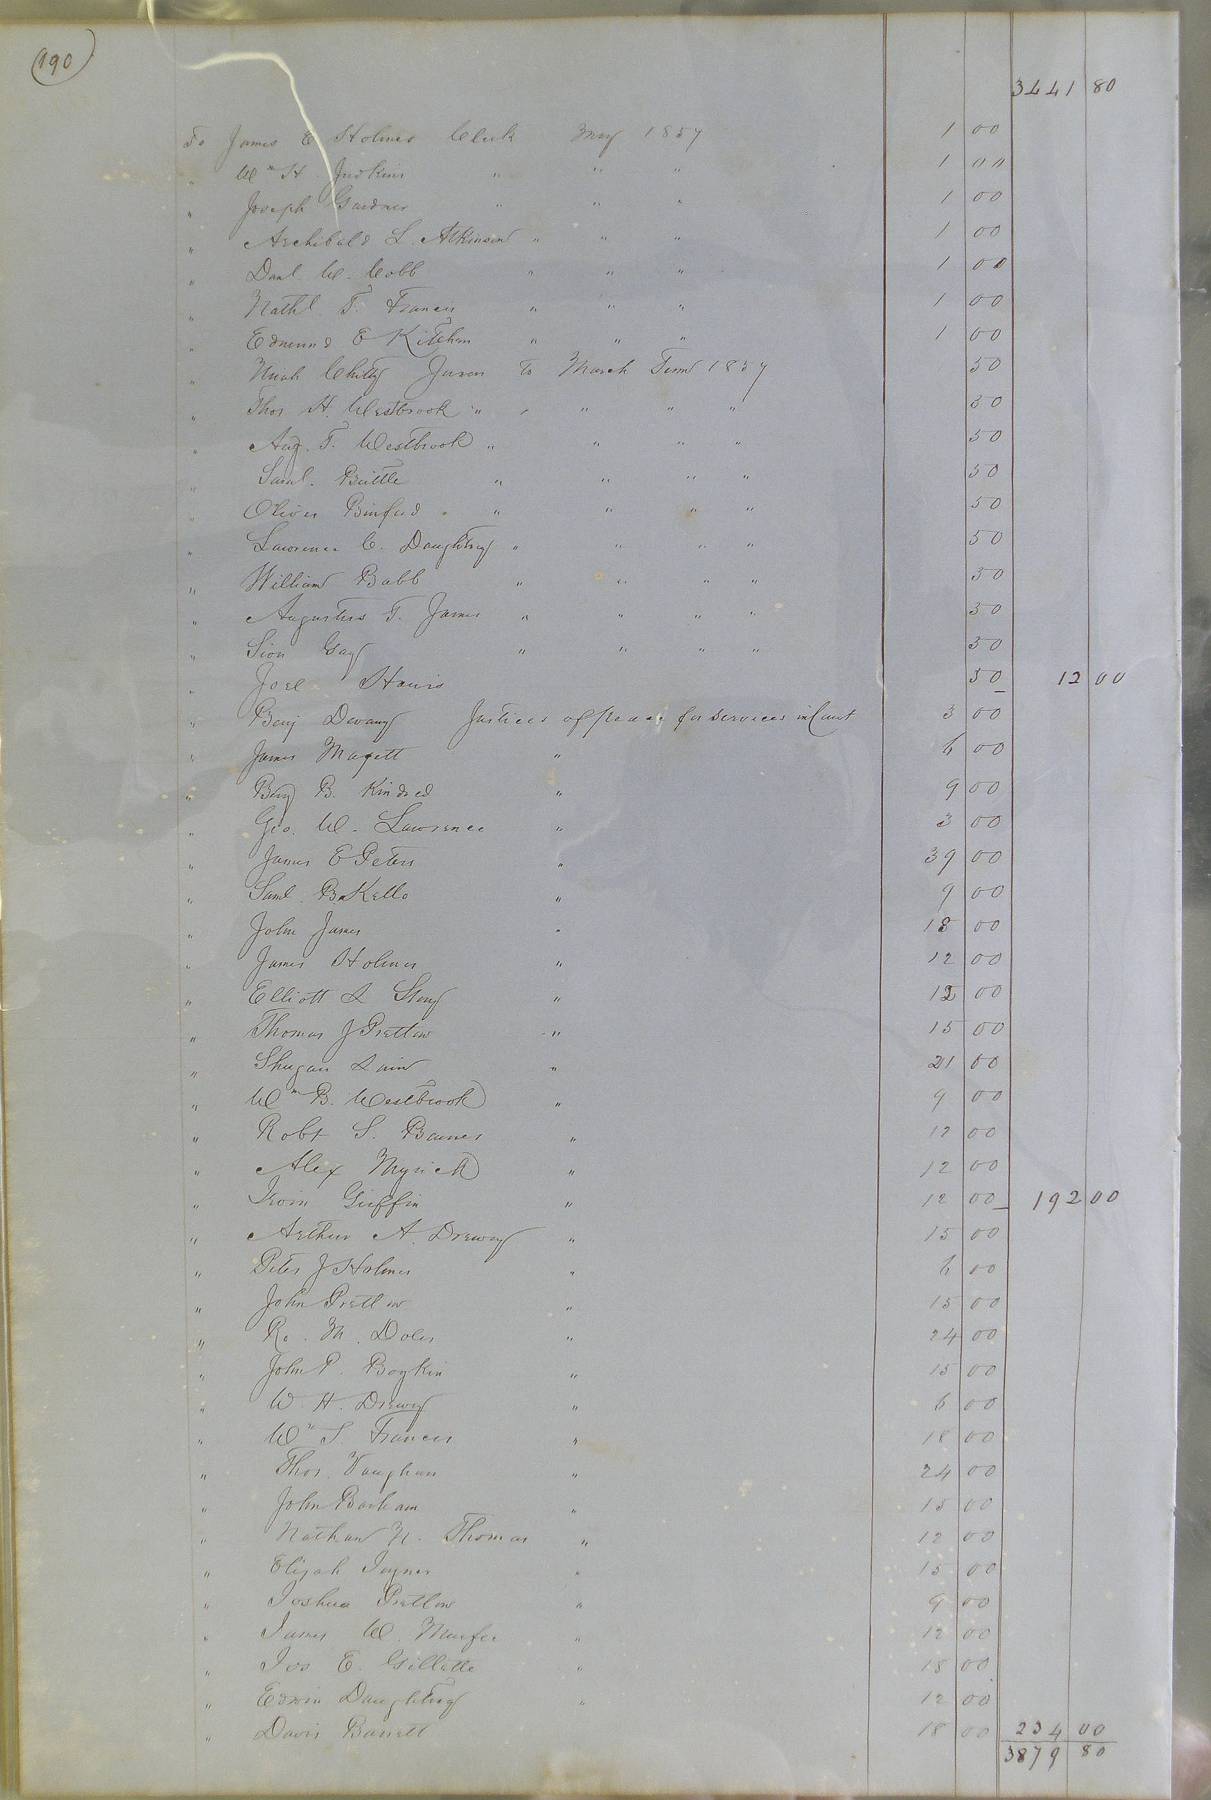 190
3441 80
To James E Holmes Clerk May 1857 1 00
" Wm H. Judkins " " " 1 00
" Joseph Gardner " " " 1 00
" Archibald L. Atkinson " " " 1 00
" Danl W. Cobb " " " 1 00
" Nathl. T. Francis " " " 1 00
" Edmund E Kitchen " " " 1 00
" Noah Chitty Juror to March Term 1857 50
" Thos H. Westbrook " " " " 50
" Aug. T. Westbrook " " " " 50
" Saml. Brittle " " " " 50
" Oliver Binford " " " " 50
" Lawrence C. Daughtrey " " " " 50
" William Babb " " " " 50
" Augustus T. James " " " " 50
" Sion Gay " " " " 50
" Joel Harris 50 12 00
" Benj Devany Justices of peace for services in Court 3 00
" James Magett " 6 00
" Benj B. Kindred " 9 00
" Geo. W. Lawrence " 3 00
" James E Peters " 39 00
" Saml. B. Kello " 9 00
" John James " 18 00
" James Holmes " 12 00
" Elliott L Story " 12 00
" Thomas J Pretlow " 15 00
" Shugars Lain " 21 00
" Wm B. Westbrook " 9 00
" Robt S. Barnes " 12 00
" Alex Myrick " 12 00
" Irvin Griffin " 12 00 192 00
" Arthur A. Drewry " 15 00
" Peter J Holmes " 6 00
" John Pretlow " 15 00
" Ro. M. Doles " 24 00
" John P. Boykin " 15 00
" W. H. Drewry " 6 00
" Wm S. Francis " 18 00
" Thos. Vaughan " 24 00
" John Barham " 15 00
" Nathan N. Thomas " 12 00
" Elijah Joyner " 15 00
" Joshua Pretlow " 9 00
" James W. Murfee " 12 00
" Jos E. Gillette " 18 00
" Edwin Daughtrey " 12 00
" Davis Barrett 18 00 234 00
3879 80